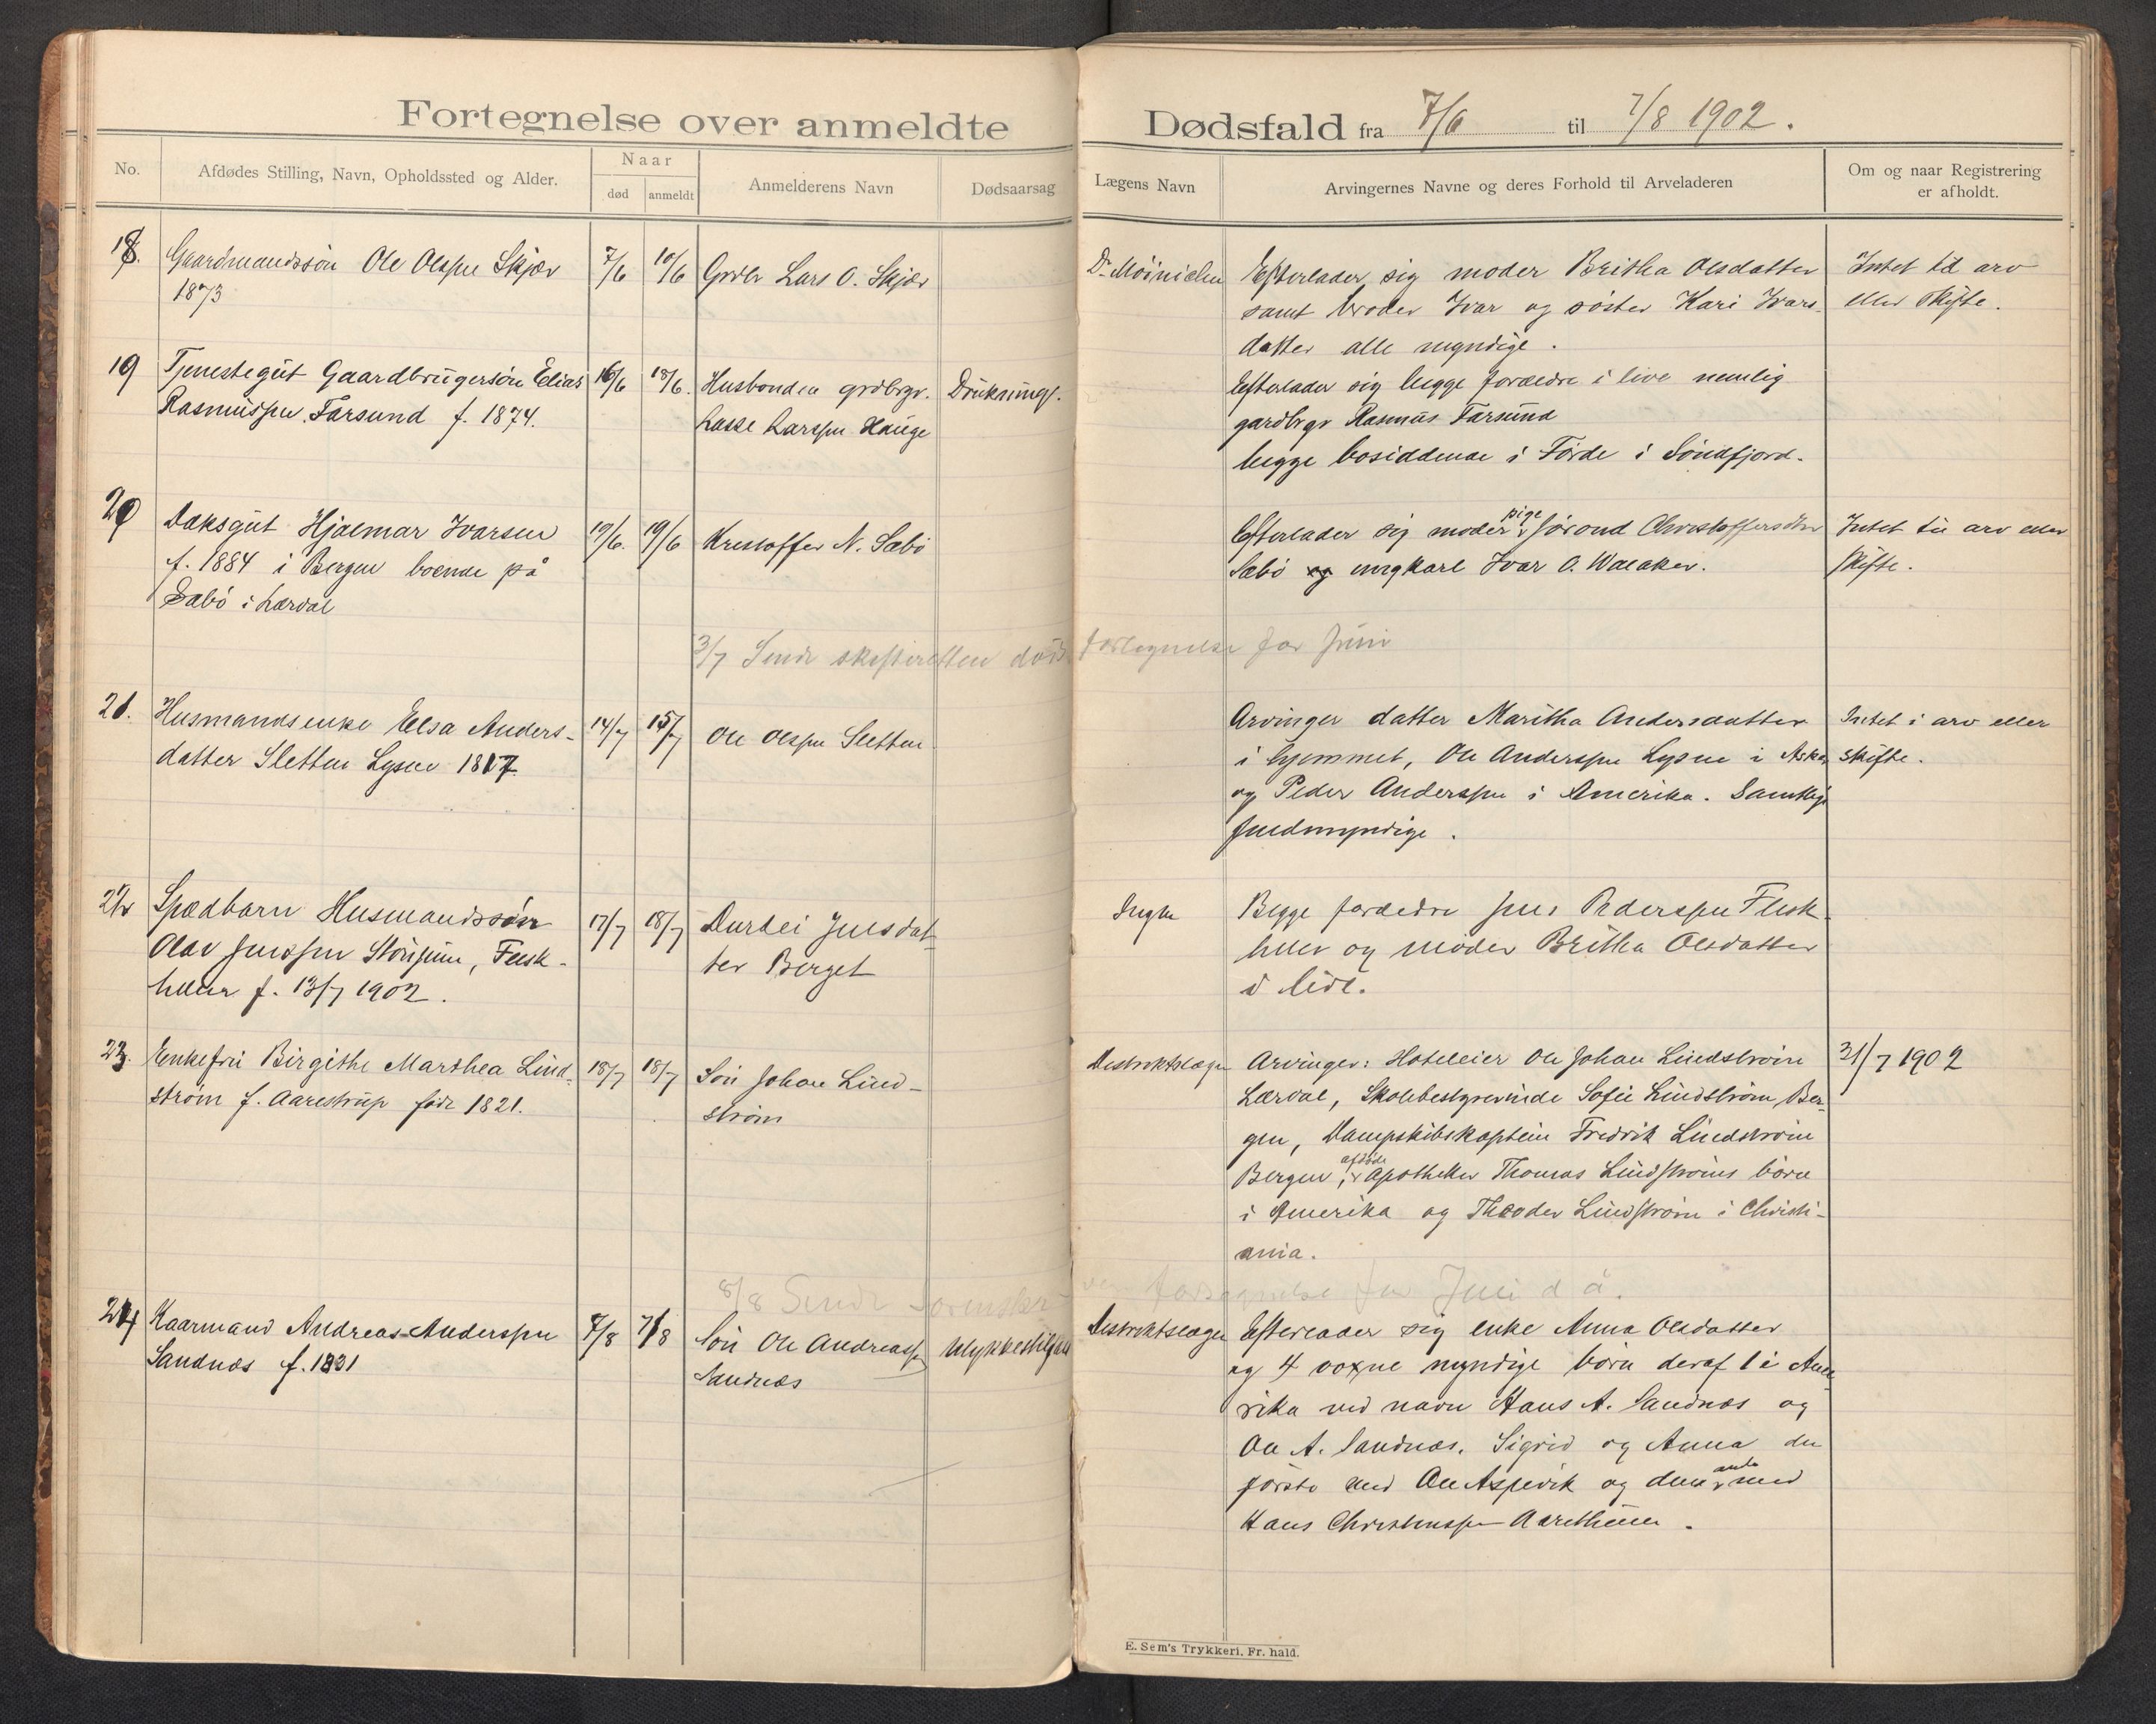 Fortegnelse over anmeldte Dødsfald fra 7/6 til 7/8 1902.
No. Afdødes Stilling, Navn, Opholdssted og Alder. Naar død anmeldt Anmelderens Navn Dødsaarsag Lægens Navn Arvingernes Navne og deres Forhold til Arveladeren Om og naar Registrering er afholdt.
18. Gaardmandssøn Ole Olsen Skjær 7/6 10/6 Grdbr Lars O. Skjær
1873
Efterlader sig moder Britha Olsdatter
samt broder Ivar og søster Kari Ivars-
datter alle myndige.
Intet til arv
eller skifte.
19 Tjenestegut Gaardbrugersøn Elias 16/6 18/6. Husbonden grdbrgr. Drukning.
Rasmussen Farsund f. 1874. Lasse Larssen Hauge
Efterlader sig begge forældre i live nemlig
gardbrgr Rasmus Farsund
begge bosiddende i Førde i Søndfjord.
20 Daksgut Hjalmar Ivarsen 19/6 Kristoffer N. Sæbø
f. 1884 i Bergen boende på
Sæbø i Lærdal
Efterlader sig moder pige Jørond Christoffersdtter
Sæbø og ungkarl Ivar O. Walaker.
Intet til arv eller
skifte.
3/7 Sendt skifteretten døds fortegnelse for Juni
21. Husmandsenke Elsa Anders- 14/7 15/7 Ole Olsen Sletten
datter Sletten Lysne 1817
Arvinger datter Maritha Andersdatter
i hjemmet, Ole Anderssen Lysne i Aska
og Peder Anderssen i Amerika. Samtlige
fuldmyndige.
Intet i arv eller
skifte.
22 Spædbarn Husmandssøn 17/7 18/7 Durdei Jensdat-
Olav Jenssen Stønjum, Flesk- ter Berget
f. 13/7 1902.
Ingen
Begge forældre Jens Pederssen Flesk-
og moder Britha Olsdatter
i live.
23. Enkefru Birgithe Marthea Lind- 18/7 18/7 Søn Johan Lind-
strøm f. Aarestrup født 1821. strøm
Distriktslægen
Arvinger: Hoteleier Ole Johan Lindstrøm
Lærdal, Skolebestyrerinde Sofie Lindstrøm Ber-
gen, Dampskibskaptein Fredrik Lindstrøm
Bergen, afdøde Apotheker Thomas Lindstrøms børn
i Amerika og Theodor Lindstrøm i Christi-
ania.
31/7 1902
8/8 Sendt sorenskr fortegnelse for Juli d å.
24 Kaarmand Andreas Anderssen 7/8 7/8 Søn Ole Andreass Ulykkestilfæl
Sandnæs f. 1831 Sandnæs
Distriktslægen
Efterlader sig enke Anna Olsdatter
og 4 voxne myndige børn deraf 1 i Ame-
rika ved navn Hans A. Sandnæs og
Ole A. Sandnæs. Sigrid og Anna den
første med Ole Aspevik og den anden med
Hans Christenssen Aarethuen.
E. Sem's Trykkeri. Fr. hald.